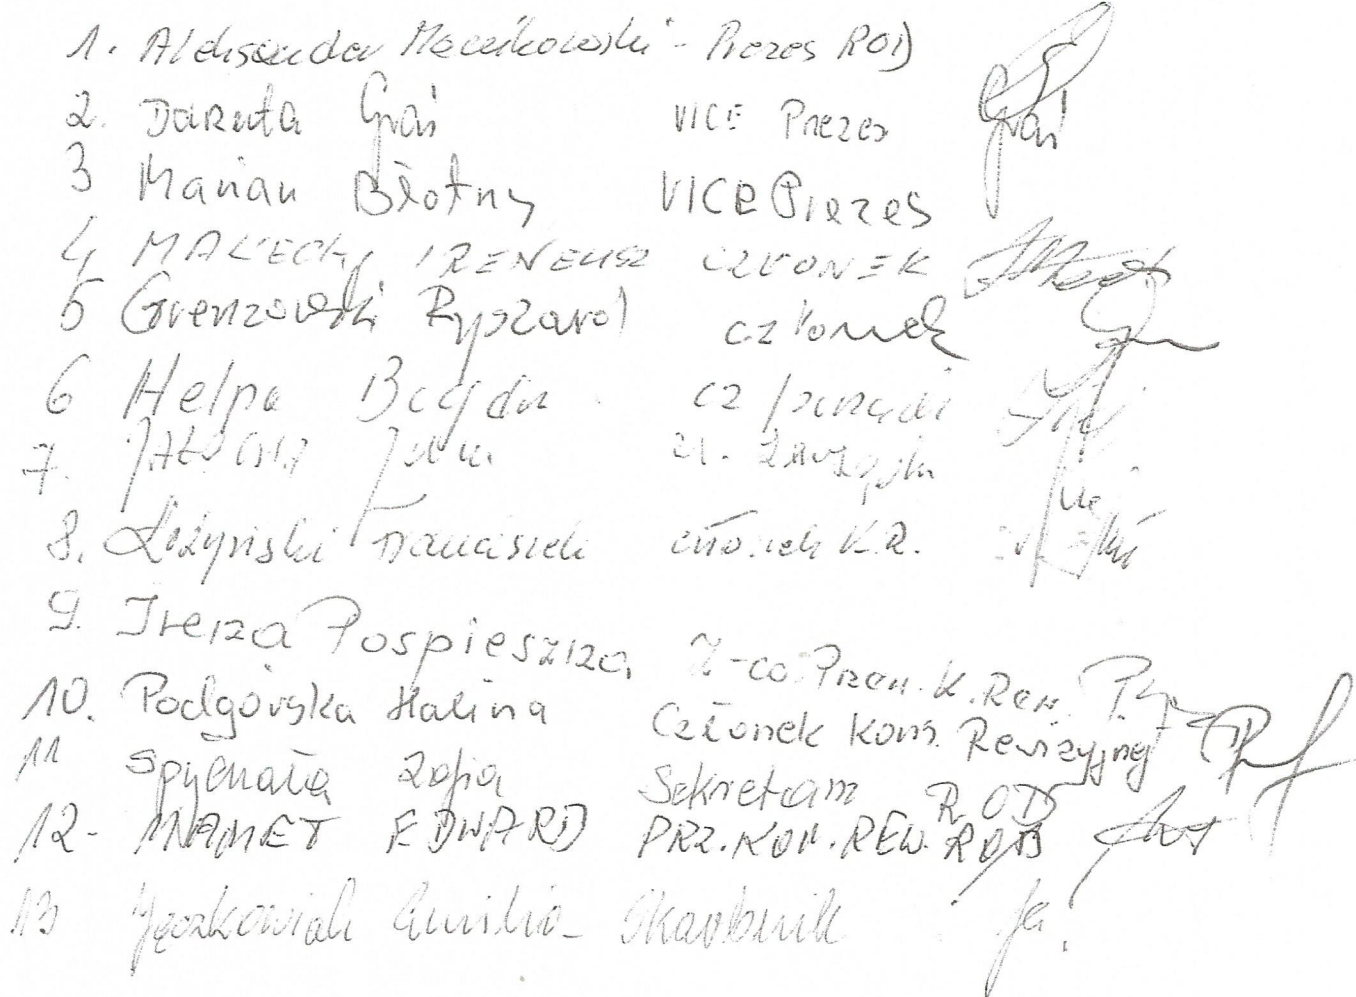 1. Aleksander Maćkowski - Prezes ROD
2. Danuta Graś VICE Prezes Graś
3 Marian Błotny VICE Prezes
4 MALECKI IRENEUSZ CZŁONEK
5 Grenzowski Ryszard członek
6 Helpa Bogdan cz zarządu
7. Jan cz. zarządu
8. Franciszek członek K.R.
9. Irena Pospieszna Z-ca Przew. K. Rew.
10. Podgórska Halina Członek Kom. Rewizyjnej
11 Spychała Zofia Sekretarz ROD
12- MAMET EDWARD PRZ. KOM. REW. ROD
13 Jęczkowiak Emilia - Skarbnik